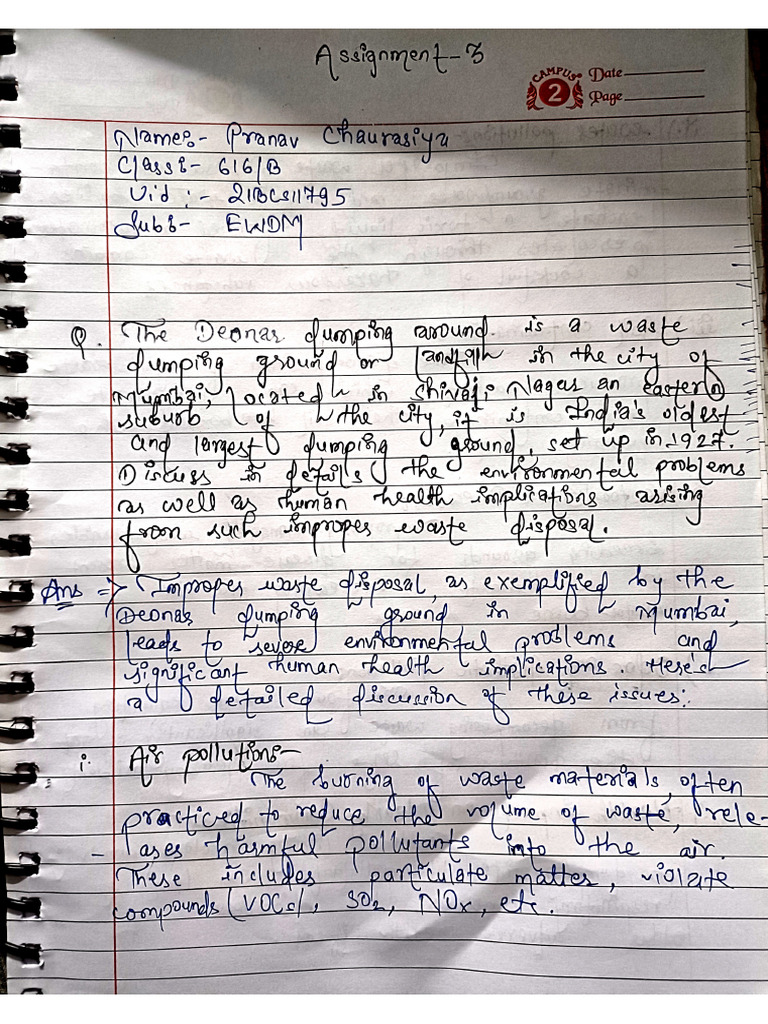 Assignment-3
CAMPUS
2
Date
Page
Name:- Pranav Chaurasiya
Class:- 616/B
Uid :- 21BCS11795
Sub:- EWDM
Q. The Deonar dumping around is a waste
dumping ground or landfill in the city of
Mumbai, located in Shivaji Nagar an eastern
suburb of the city, it is India's oldest
and largest dumping ground, set up in 1927.
Discuss in details the environmental problems
as well as human health implications arising
from such improper waste disposal.
Ans => Improper waste disposal, as exemplified by the
Deonar dumping ground in Mumbai,
leads to severe environmental problems and
significant human health implications. Here's
a detailed discussion of these issues:
i. Air pollution:-
The burning of waste materials, often
practiced to reduce the volume of waste, rele-
- ases harmful pollutants into the air.
These includes particulate matter, violate
compounds (VOCs), SO2, NOx, etc.